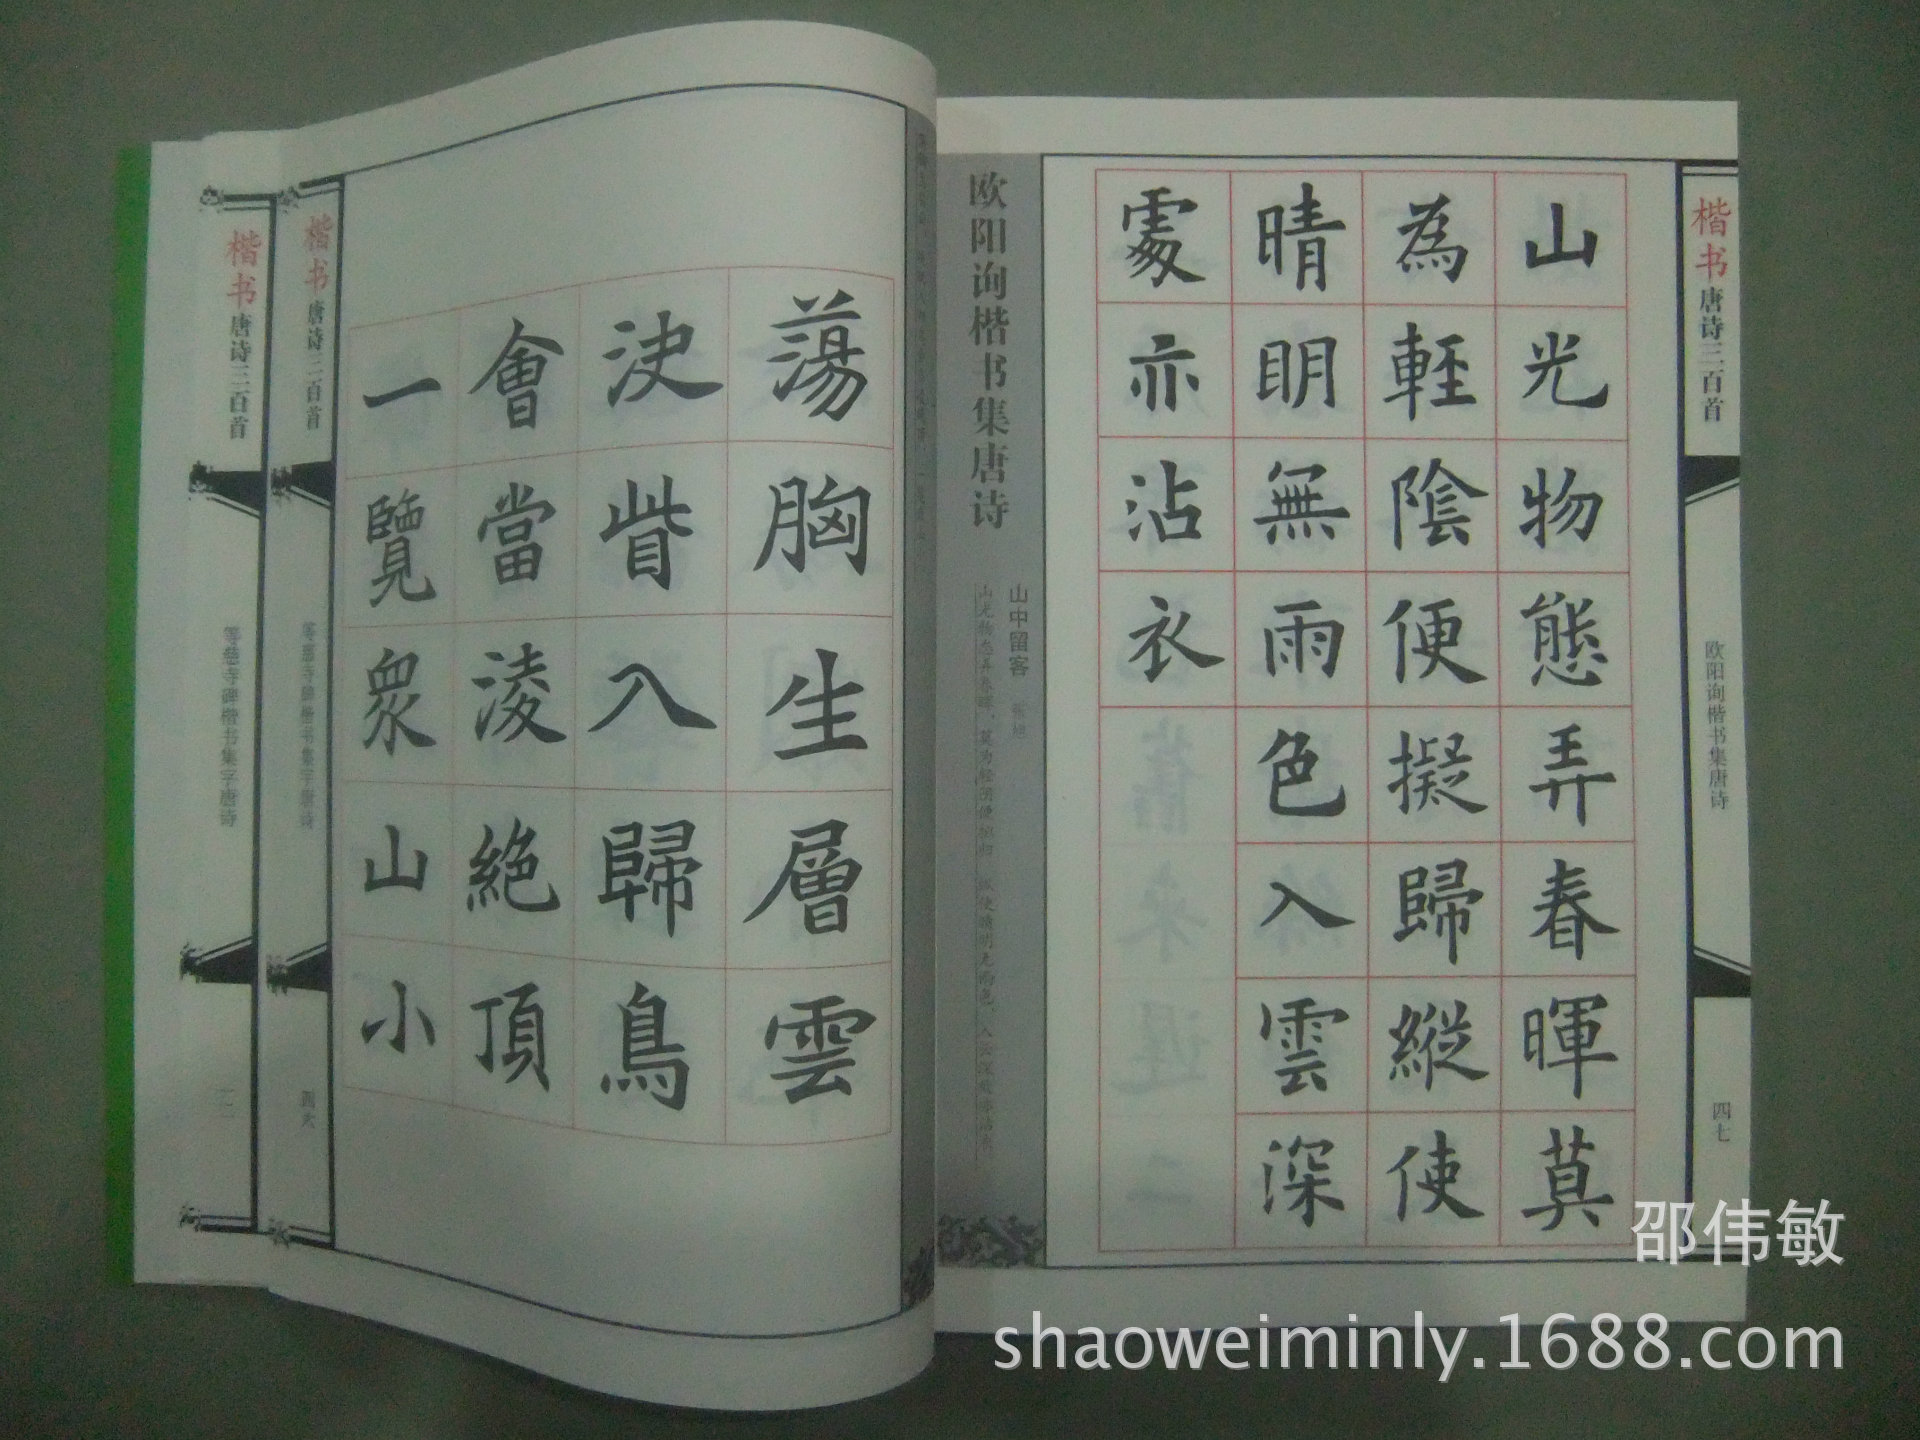 楷书唐诗三百首
欧阳询楷书集唐诗
四七
山光物態弄春暉莫
為輕陰便擬歸縱使
晴明無雨色入雲深
處亦沾衣
欧阳询楷书集唐诗
山中留客 张旭
山光物态弄春晖，莫为轻阴便拟归。纵使晴明无雨色，入云深处亦沾衣。
蕩胸生層雲
決眥入歸鳥
會當淩絕頂
一覽眾山小
楷书唐诗三百首
等慈寺碑楷书集字唐诗
四六
楷书唐诗三百首
等慈寺碑楷书集字唐诗
邵伟敏
shaoweiminly.1688.com